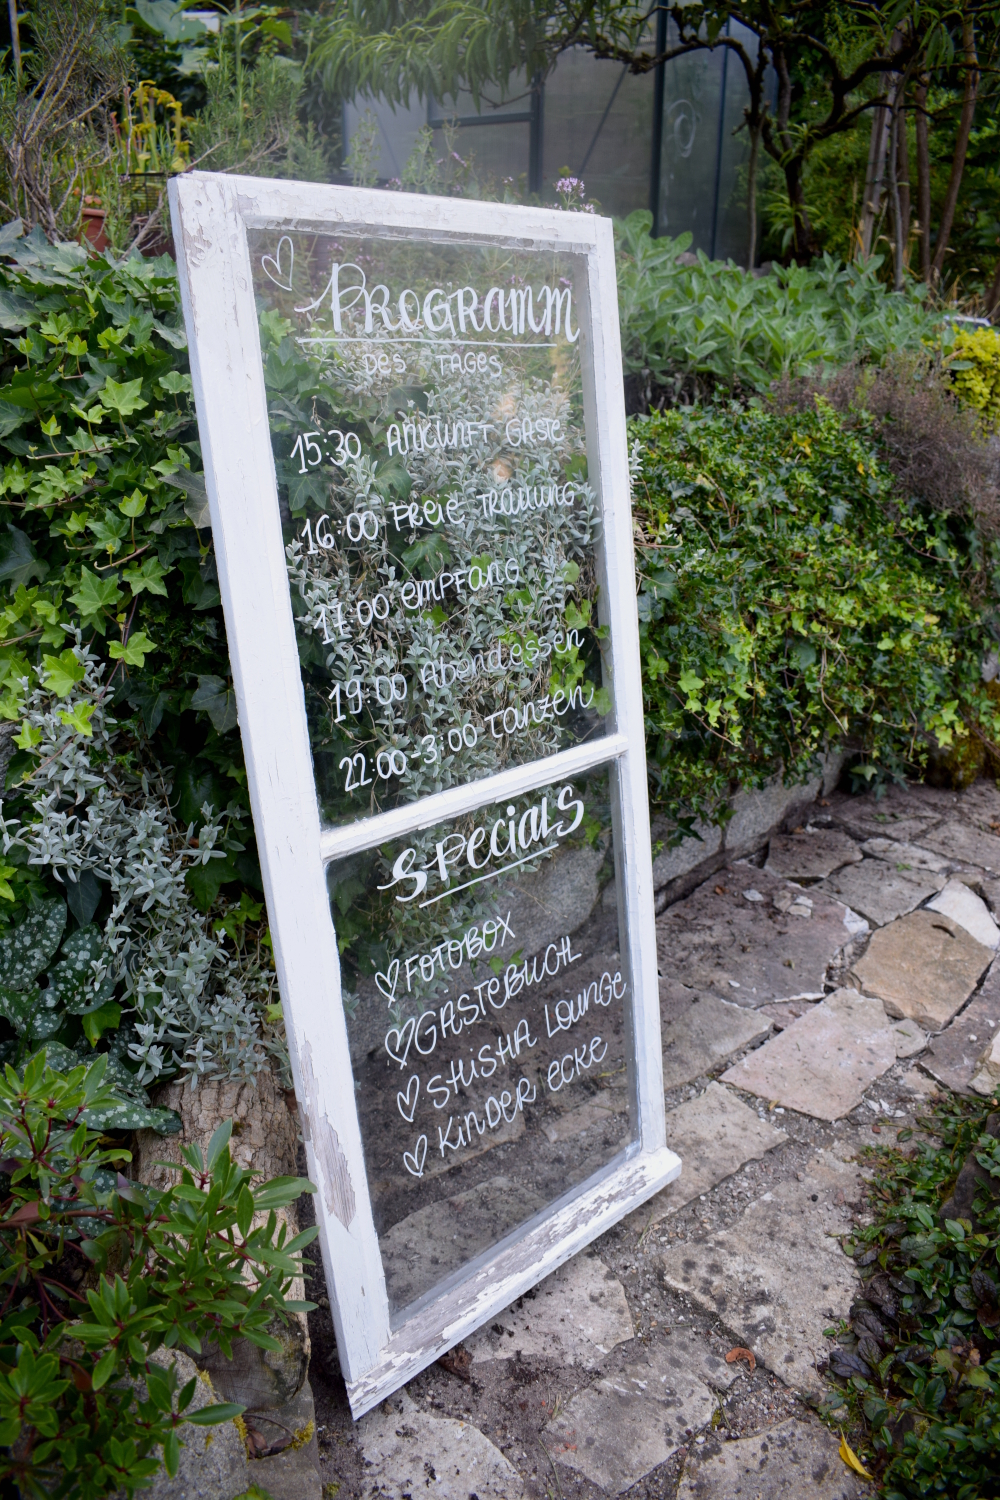 PROGRAMM
DES TAGES
15:30 ANKUNFT GÄSTE
16:00 FREIE TRAUUNG
17:00 EMPFANG
19:00 Abendessen
22:00-3:00 TANZEN
SPECIALS
FOTOBOX
GÄSTEBUCH
SHISHA LOUNGE
KINDER ECKE